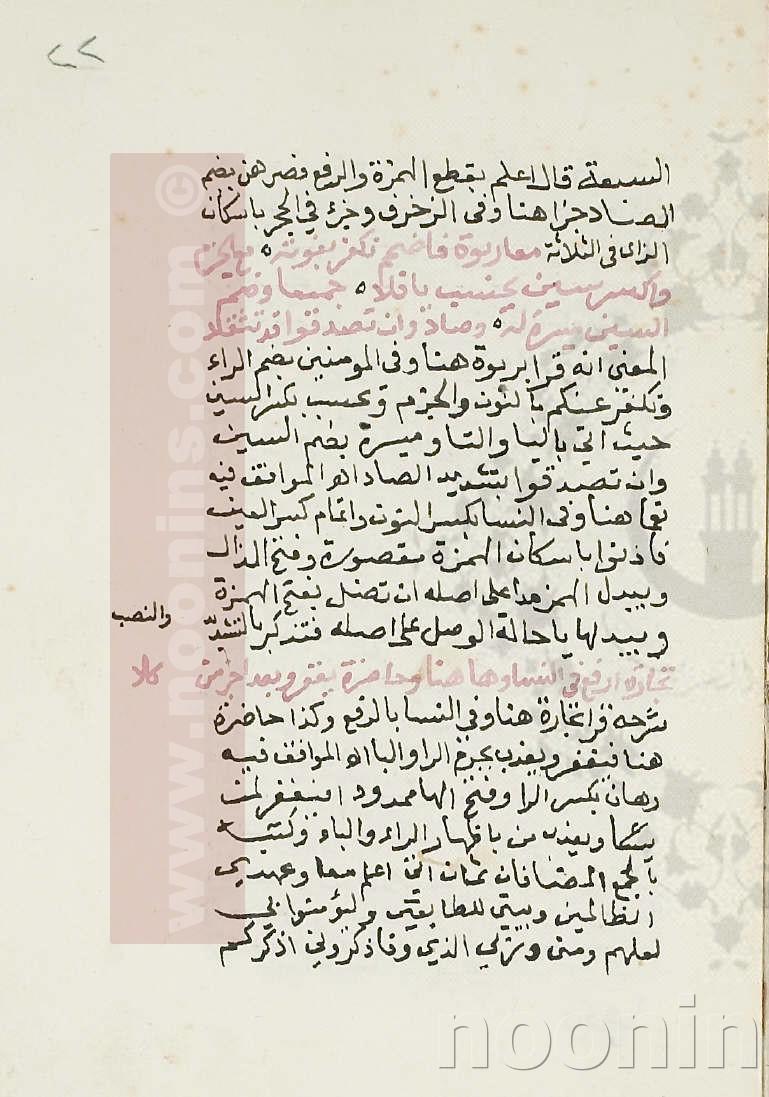 ٢٢
السبعة قال اعلم بقطع الهمزة والرفع فصرهن بضم
الصاد جزا هنا وفى الزخرف وجزء في الحجر باسكان
الزاى فى الثلاثة معا ربوة فاضمم نكفر بنونه ٥ مع الجزم
واكسر سين يحسب يا فلا ٥ جميعا وضم
السين ميسرة له ٥ وصاد وان تصدقوا قد تثقلا
المعنى انه قرا بربوة هنا وفى المومنين بضم الراء
ونكفر عنكم بالنون والجزم ويحسب بكسر السين
حيث اتي باليا والتا وميسرة بضم السين
وان تصدقوا بتشديد الصاد اه الموافق فيه
نعما هنا وفى النسا بكسر النون واتمام كسر العين
فاذنوا باسكان الهمزة مقصورة وفتح الذال
ويبدل الهمز مدا على اصله ان تضل بفتح الهمزة
ويبدلها يا حالة الوصل على اصله فتذكر بالتشد
والنصب
تجارة ارفع في النسا وها هنا وحاضرة يغفر وبعد اجزمن كلا
شرحه قرا تجارة هنا وفي النسا بالرفع وكذا حاضرة
هنا فيغفر ويعذب بجزم الرا والبا اه الموافق فيه
رهان بكسر الرا وفتح الها ممدودا فيغفر لمن
يشا ويعذب من باظهار الراء والباء وكتبه
بالجمع المضافات ثمان اني اعلم معا وعهدي
الظالمين وبيتي للطايفين وليؤمنوا بي
لعلهم ومني وربي الذي وفاذكروني اذكركم
www.noonins.com
noonin